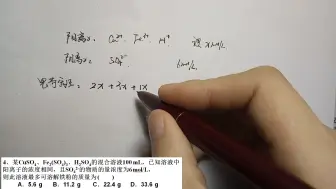 阳离子: Cu²⁺ Fe³⁺ H⁺ 设 x mol/L
阴离子: SO₄²⁻ 6mol/L
电荷守恒: 2x + 3x + 1x
4、某CuSO₄、Fe₂(SO₄)₃、H₂SO₄的混合溶液100 mL，已知溶液中
阳离子的浓度相同，且SO₄²⁻的物质的量浓度为6 mol/L，
则此溶液最多可溶解铁粉的质量为( )
A. 5.6 g B. 11.2 g C. 22.4 g D. 33.6 g